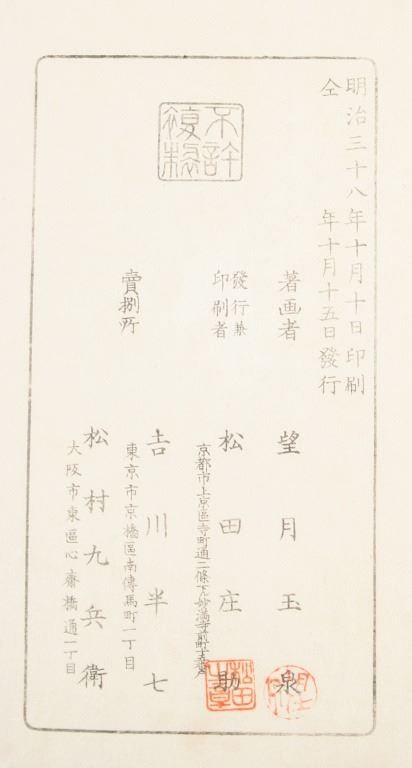 明治三十八年十月十日印刷
仝年十月十五日發行
不許
複製
著画者
望月玉泉
發行兼
印刷者
松田庄助
京都市上京區寺町通二條下ル妙満寺前町
賣捌所
吉川半七
東京市京橋區南傳馬町一丁目
松村九兵衛
大阪市東區心齋橋通一丁目